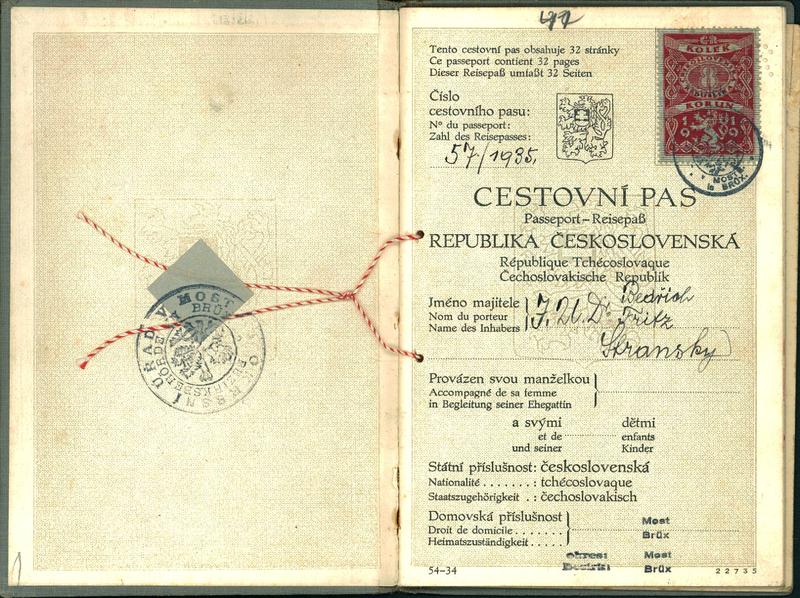 OKRESNÍ ÚŘAD V MOSTĚ
BEZIRKSBEHÖRDE IN BRÜX
Tento cestovní pas obsahuje 32 stránky
Ce passeport contient 32 pages
Dieser Reisepaß umfaßt 32 Seiten
Číslo
cestovního pasu:
Nº du passeport:
Zahl des Reisepasses:
57/1935.
KOLEK
KORUN
MOST
BRÜX.
CESTOVNÍ PAS
Passeport–Reisepaß
REPUBLIKA ČESKOSLOVENSKÁ
République Tchécoslovaque
Čechoslovakische Republik
Jméno majitele
Nom du porteur
Name des Inhabers
J.U.Dr Bedřich
Fritz
Stransky
Provázen svou manželkou
Accompagné de sa femme
in Begleitung seiner Ehegattin
a svými dětmi
et de enfants
und seiner Kinder
Státní příslušnost: československá
Nationalité . . . . . . . : tchécoslovaque
Staatszugehörigkeit . : čechoslovakisch
Domovská příslušnost
Droit de domicile . . . . . . .
Heimatszuständigkeit . . . . .
Most
Brüx
okres: Most
Bezirk: Brüx
54-34
22735